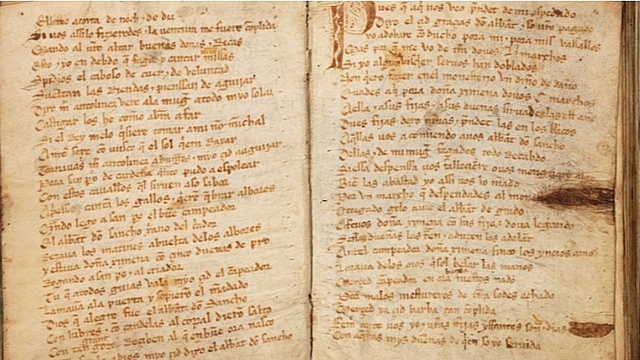 El me acorra de noch e de dia
Si vos assi lo fizieredes e la ventura me fuere complida
Mando al vro altar buenas donas e Ricas
Esto e yo en debdo que faga y cantar mill missas
Spidios el caboso de cuer e de veluntad
Sueltan las Riendas e pienssan de aguijar
Dixo mrtin antolinez vere ala mugier atodo myo solaz
Castigar los he como abran afar
Si el Rey melo qisiere tomar ami non minchal
Antes sere con vusco q el sol qiera Rayar
Tornauas mrtin antolinez aburgos e myo çid aaguijar
Pora san pero de cardeña qnto pudo aespolear
Con estos cauallos ql siruen aso sabor
Apriessa cantan los gallos e qeren qbrar albores
Qndo lego a san pero el buen campeador
El abbat don sancho xpiano del criador
Rezaua los matines abuelta delos albores
y estaua doña ximena con çinco duenas de pro
Rogando a san pero e al criador
Tu q atodos guias val a myo çid el campeador
Lamauan ala puerta y sopieron el mandado
Dios q alegre fue el abbat don sancho
Con lunbres e con candelas al corral dieron salto
Con tan grant gozo Reçiben al q en bue ora nasco
adios myo çid dixo el abbat don sancho
Pues q aqi vos veo prendet de mi ospedado
Dixo el çid graçias don abbat e so vro pagado
yo adobare conducho pora mi e pora mis vassallos
Mas por q me vo de tierra douos L marchos
Si yo algun dia visqier seruos han doblados
Non qero fazer en el monesterio vn dinero de daño
Euades aqi pora doña ximena douos C marchos
Aella e asus fijas e asus dueñas siruades las est año
Dues fijas dexo niñas e prendet las en los braços
Aqllas vos acomiendo auos abbat don sancho
Dellas e de mi mugier fagades todo Recabdo
Si essa despenssa vos falleçiere o vos menguare algo
Bien las abastad yo assi vos lo mando
Por vn marcho q despendades al mones
Otorgado gelo auie el abbat de grado
Afeuos doña ximena con sus fijas do ua legando
Señas dueñas las traen e aduzen las adelant
Antel campeador doña ximena finco los ynoios amos
Loraua delos oios qsol besar las manos
Merçed campeador en ora buena fuestes nado
Por malos mestureros de tierra sodes echado
Merçed ya çid barba tan complida
Fem ante vos yo e uras fijas yffantes son e dias
Con aqstas mys dueñas de qen so yo seruida